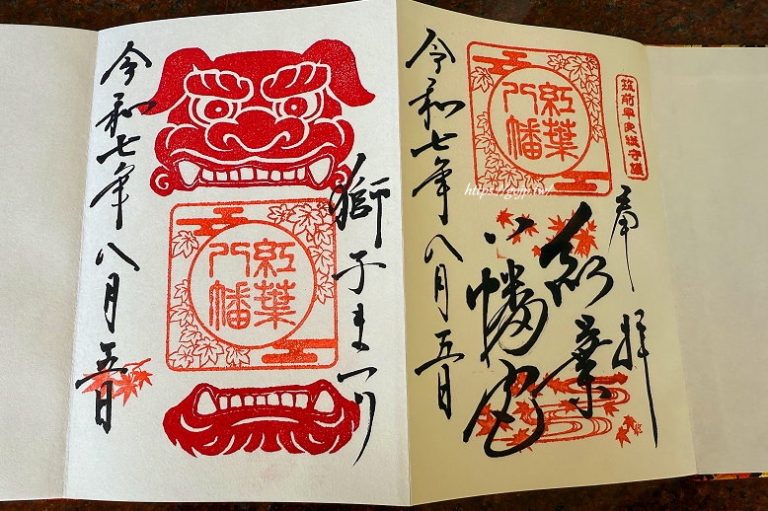 奉拝
紅葉
八幡宮
紅葉
八幡
令和七年八月五日
獅子まつり
紅葉
八幡
令和七年八月五日